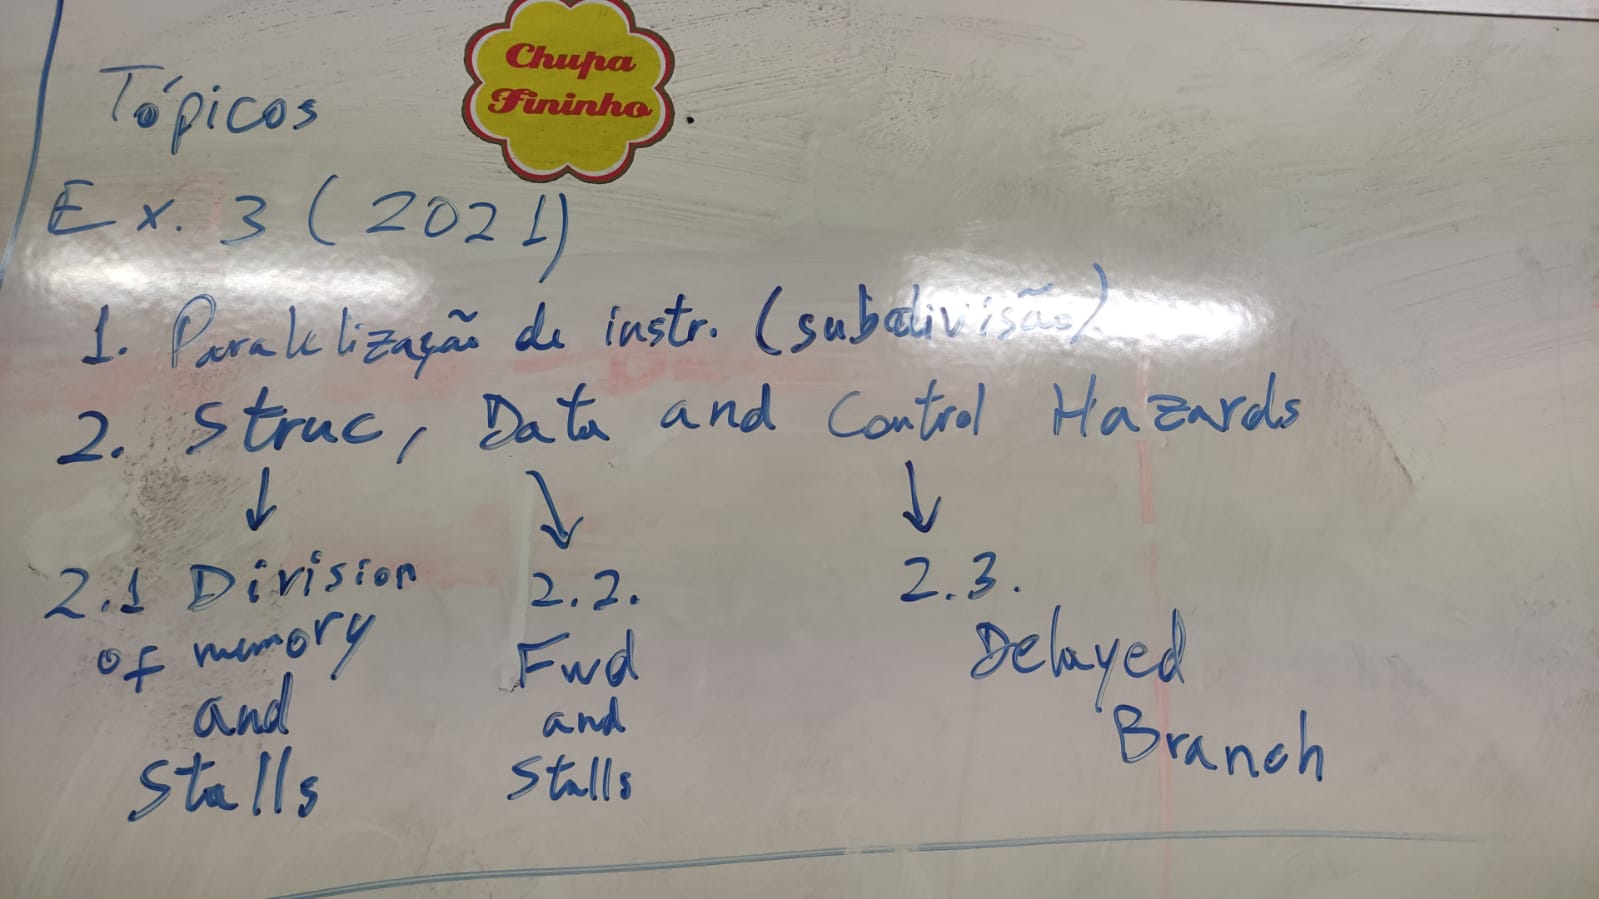 Chupa
Fininho
Tópicos
Ex. 3 (2021)
1. Paralelização de instr. (subdivisão)
2. Struc, Data and Control Hazards
2.1 Division
of memory
and
Stalls
2.2.
Fwd
and
Stalls
2.3.
Delayed
Branch